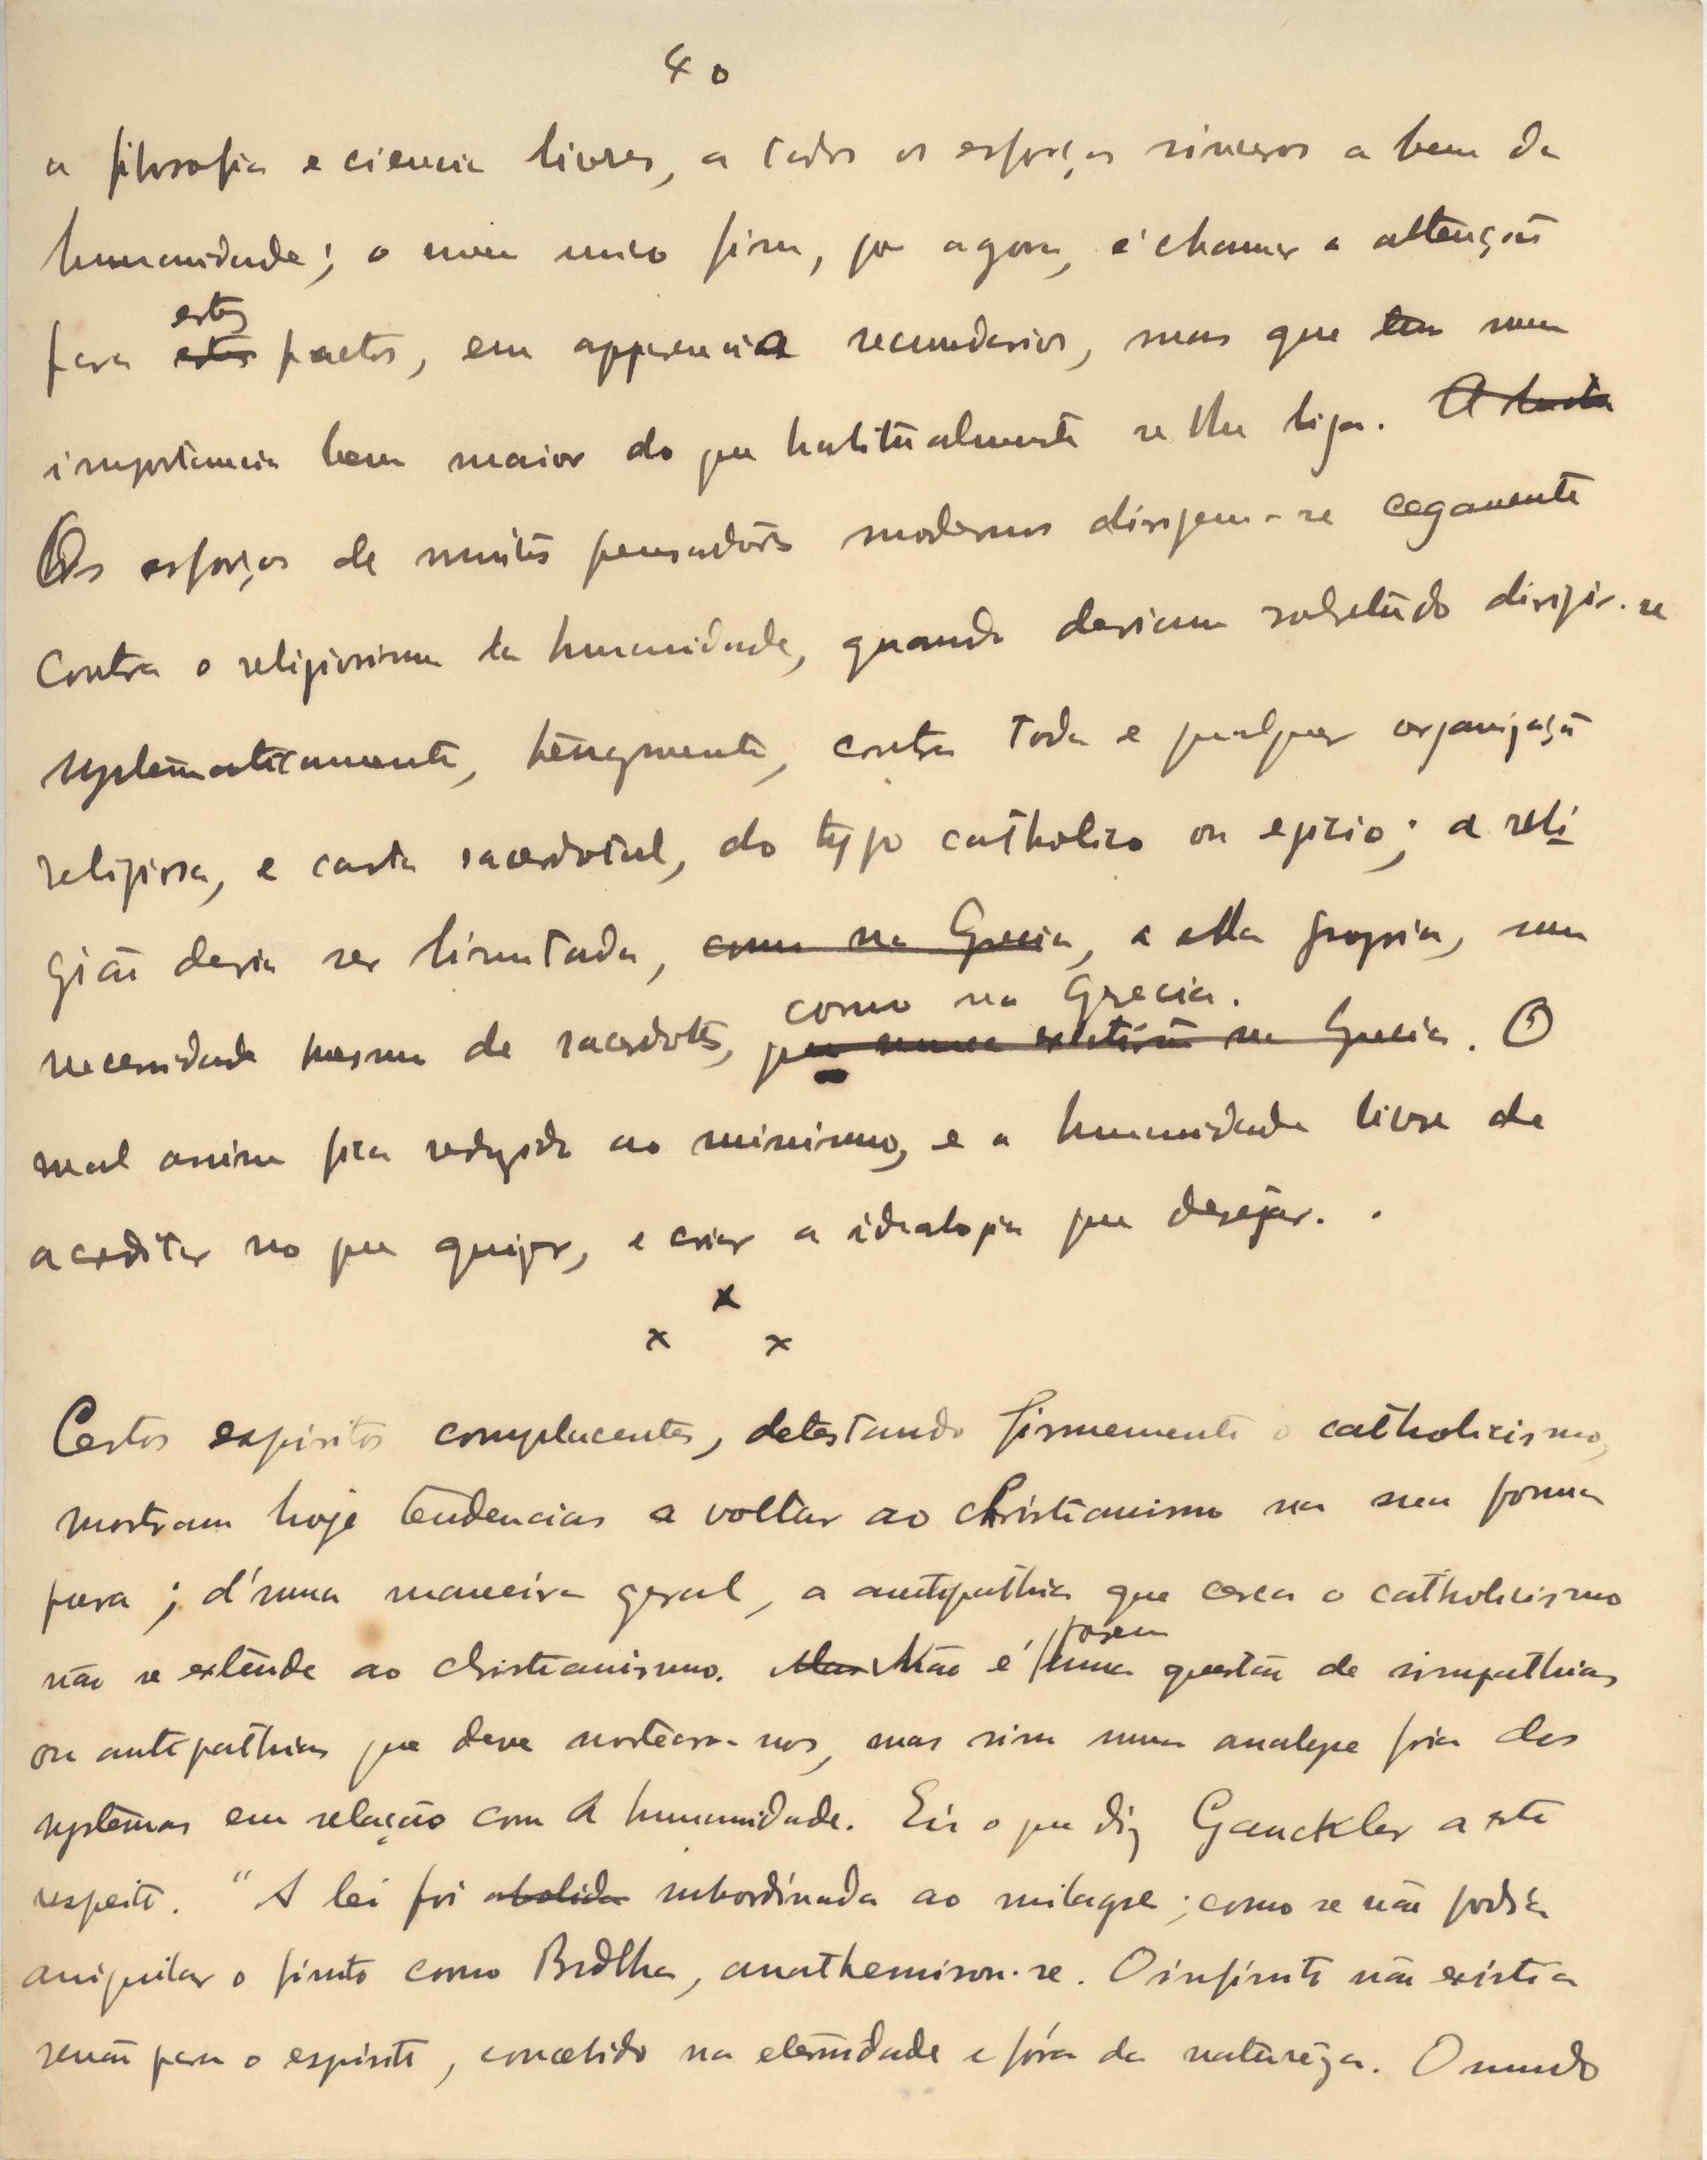 40
a filosofia e ciencia livres, a todos os esforços sinceros a bem da
humanidade; o meu unico fim, por agora, é chamar a attenção
para estes estes factos, em apparencia secundarios, mas que tem uma
importancia bem maior do que habitualmente se lhe liga. A lucta
Os esforços de muitos pensadores modernos dirigem-se cegamente
contra o religiosismo da humanidade, quando deviam sobretudo dirigir-se
systematicamente, tenazmente, contra toda e qualquer organização
religiosa, e casta sacerdotal, do typo catholico ou egicio; a reli
gião devia ser limitada, como na Grecia, a ella propria, sem
como na Grecia.
necessidade mesmo de sacerdotes, que nunca existiram na Grecia. O
mal assim fica reduzido ao minimo, e a humanidade livre de
acreditar no que quizer, e criar a idealogia que desejar.
x
x x
Certos espiritos complacentes, detestando firmemente o catholicismo,
mostram hoje tendencias a voltar ao christianismo na sua forma
pura; d'uma maneira geral, a antipathia que cerca o catholicismo
não se extende ao christianismo. Mas Não é porem uma questão de simpathias
ou antipathias que deve nortear-nos, mas sim uma analyse fria dos
systemas em relação com a humanidade. Eis o que diz Gauckler a este
respeito. "A lei foi abolida subordinada ao milagre; como se não podia
aniquilar o finito como Budha, anathemisou-se. O infinito não existia
senão para o espirito, concebido na eternidade e fóra da natureza. O mundo